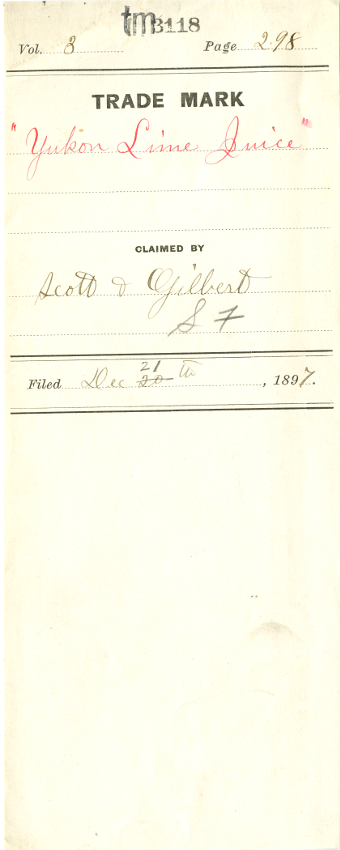 tm3118
Vol. 3 Page 298
TRADE MARK
"Yukon Lime Juice"
CLAIMED BY
Scott & Gilbert
S F
21
Filed Dec 20 th, 1897.